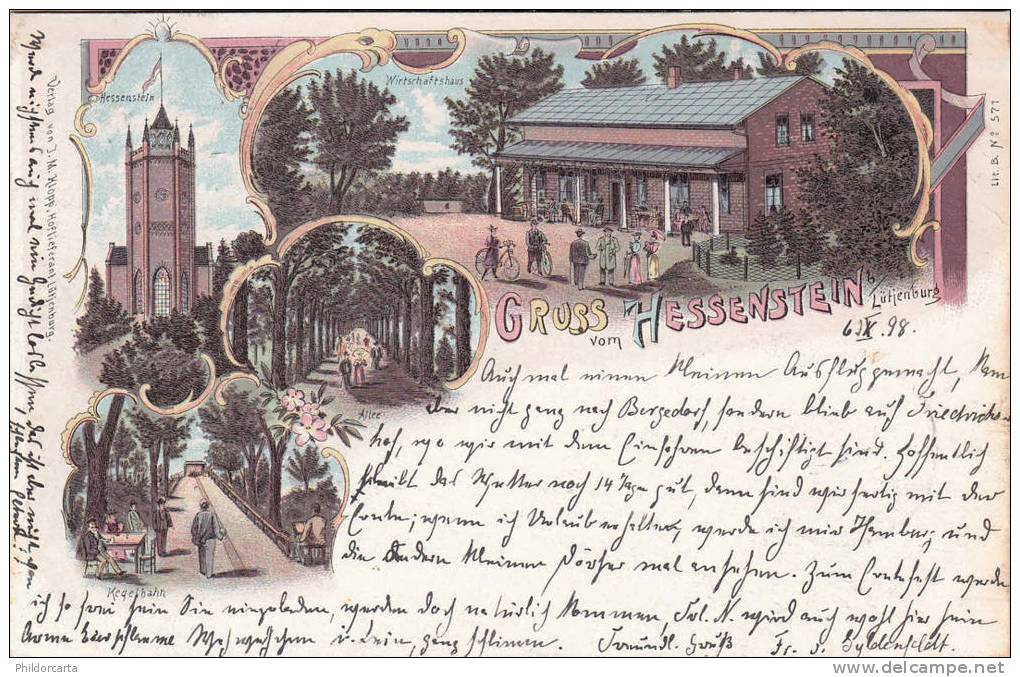 Hessenstein
Wirtschaftshaus
Verlag von J. M. Klopp, Hoflieferant, Lütjenburg.
Lit. B. No 571
GRUSS
vom HESSENSTEIN b/ Lütjenburg
Allee
Kegelbahn
6. IX. 98.
Auch mal einen kleinen Ausflug gemacht, kam
aber nicht ganz nach Bergedorf, sondern blieb auf Friedrichs-
hof, wo wir mit dem Einfahren beschäftigt sind. Hoffentlich
bleibt das Wetter noch 14 Tage gut, dann sind wir fertig mit der
Ernte; wenn ich Urlaub erhalte, werde ich mir Hamburg und
die andern kleinen Dörfer mal ansehen. Zum Erntefest werde
ich so frei sein Sie einzuladen, werden doch natürlich kommen, Frl. N. wird auch wohl hier sein
Arme u. Bein, ganz schlimm. Freundl. Gruß Fr. v. Gyldenfeldt.
Phildorcarta
www.delcampe.net